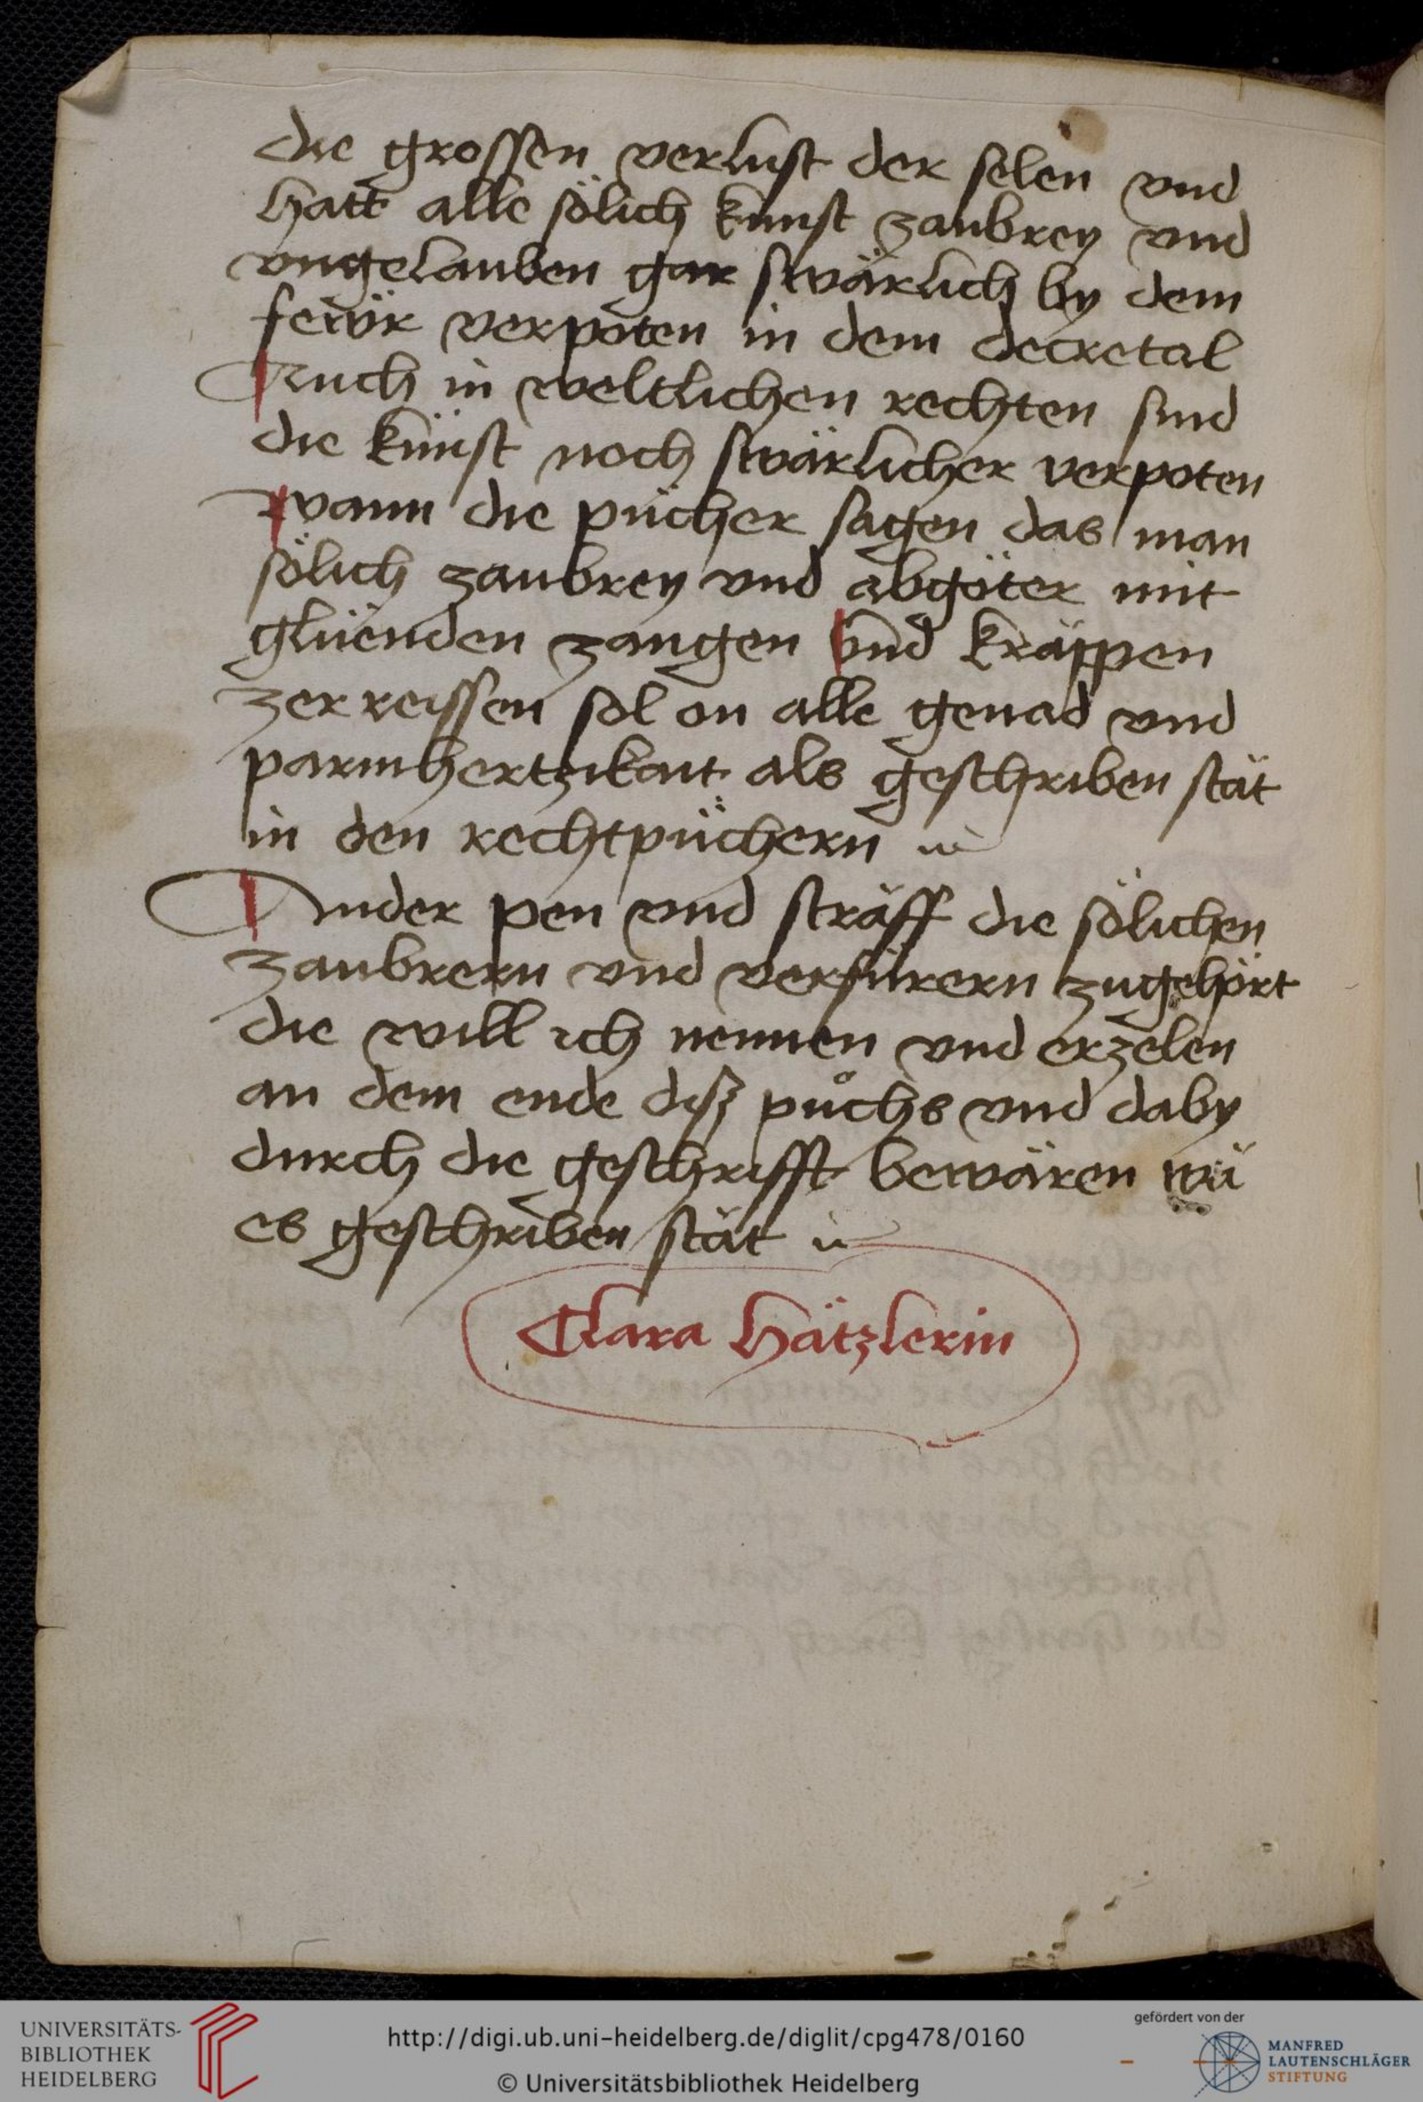 die grossen verlust der selen vnd
hatt alle sölich kunst zaubrey vnd
vngelauben gar swärlich by dem
fewr verpoten in dem decretal
Auch in weltlichen rechten sind
die künst noch swärlicher verpoten
wann die pücher sagen das man
sölich zaubrey vnd abgöter mit
glüenden zangen vnd kräppen
zerreissen sol on alle genad vnd
parmhertzikait als geschriben stät
in den rechtpüchern
Ander pen vnd sträff die sölichen
zaubrern vnd verfürern zugehört
die will ich nennen vnd erzelen
an dem ende diß půchs vnd daby
durch die geschrifft bewären wä
es geschriben stät
Clara Hätzlerin
UNIVERSITÄTS-
BIBLIOTHEK
HEIDELBERG
http://digi.ub.uni-heidelberg.de/diglit/cpg478/0160
© Universitätsbibliothek Heidelberg
gefördert von der
MANFRED
LAUTENSCHLÄGER
STIFTUNG